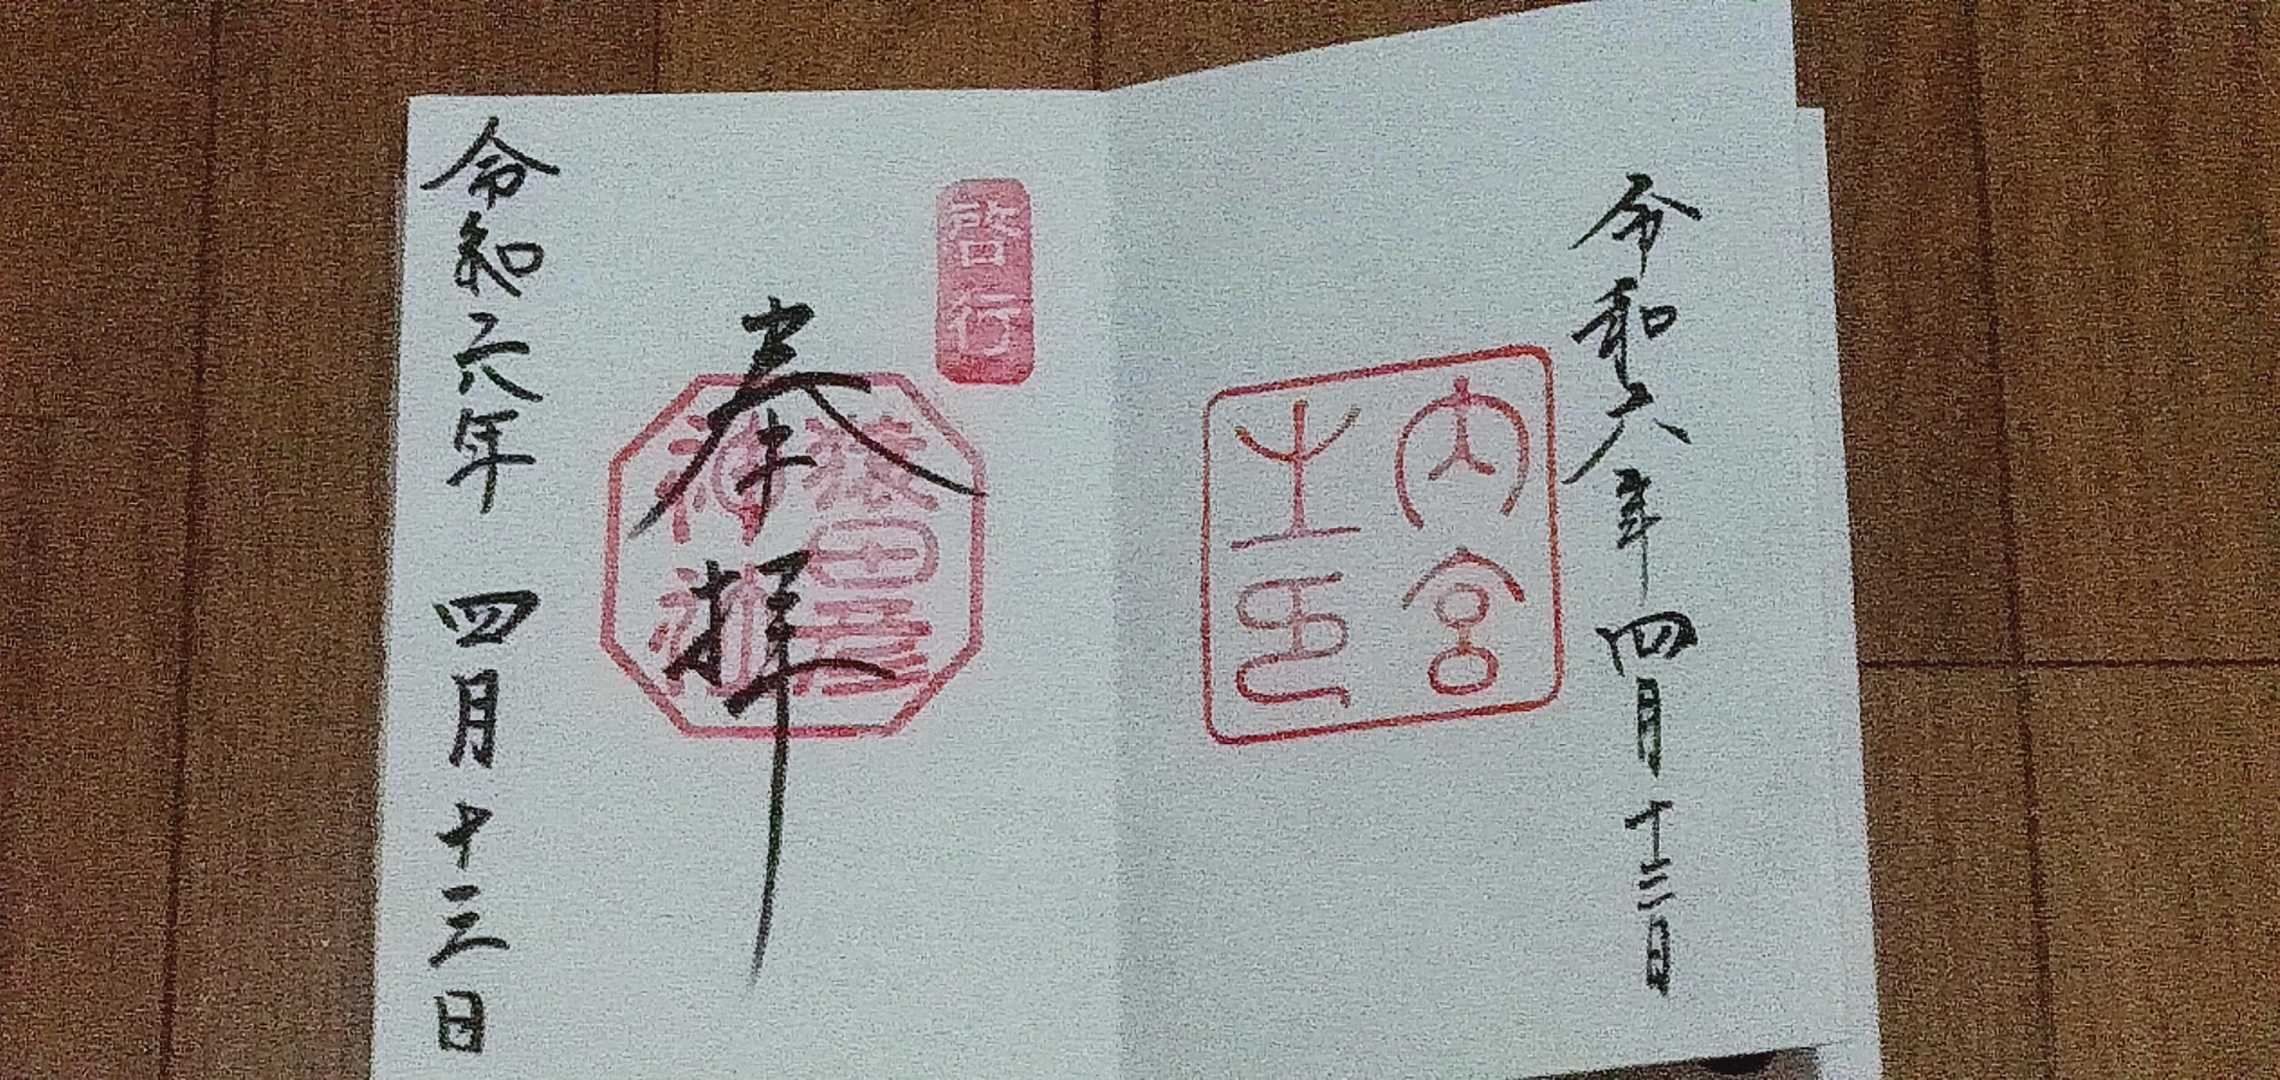 令和六年四月十三日
内宮
之印
啓行
奉拝
猿田彦
神社
令和六年 四月十三日